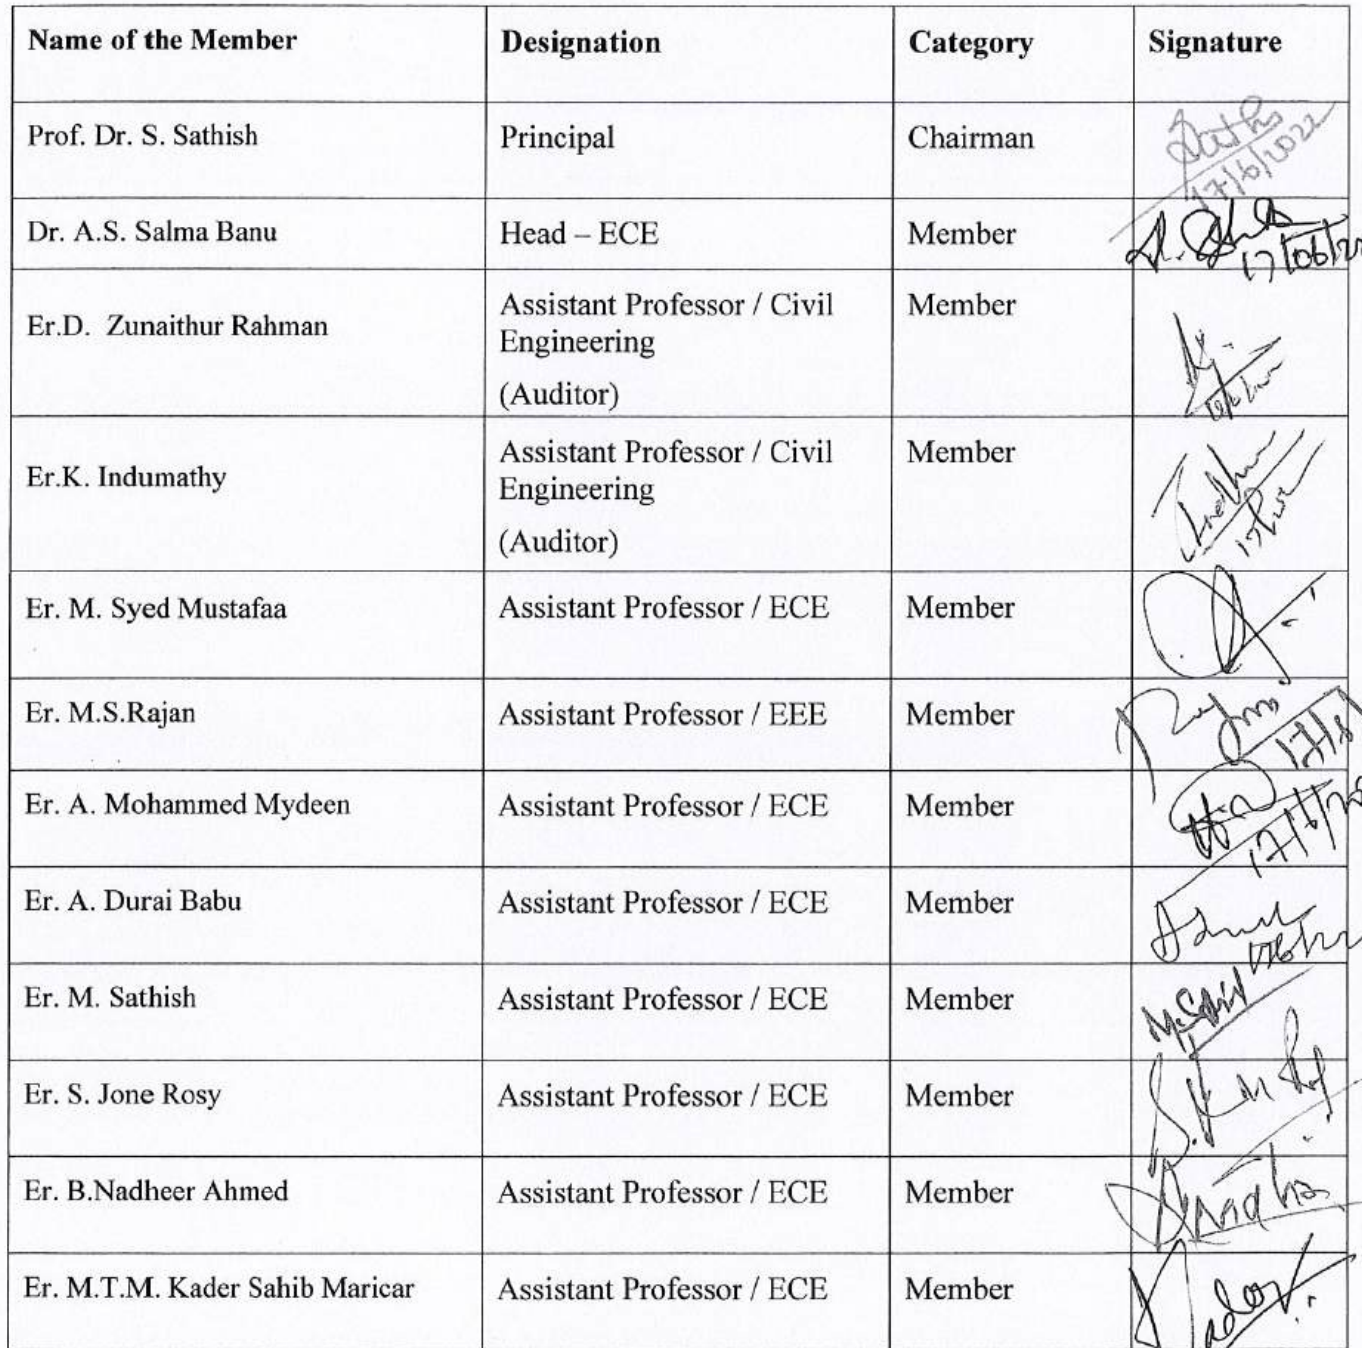 Name of the Member Designation Category Signature
Prof. Dr. S. Sathish Principal Chairman
17/6/2022
Dr. A.S. Salma Banu Head – ECE Member
17/06/20
Er.D. Zunaithur Rahman Assistant Professor / Civil Member
Engineering
(Auditor)
Er.K. Indumathy Assistant Professor / Civil Member
Engineering
(Auditor)
Er. M. Syed Mustafaa Assistant Professor / ECE Member
Er. M.S.Rajan Assistant Professor / EEE Member
Er. A. Mohammed Mydeen Assistant Professor / ECE Member
Er. A. Durai Babu Assistant Professor / ECE Member
Er. M. Sathish Assistant Professor / ECE Member
Er. S. Jone Rosy Assistant Professor / ECE Member
Er. B.Nadheer Ahmed Assistant Professor / ECE Member
Er. M.T.M. Kader Sahib Maricar Assistant Professor / ECE Member